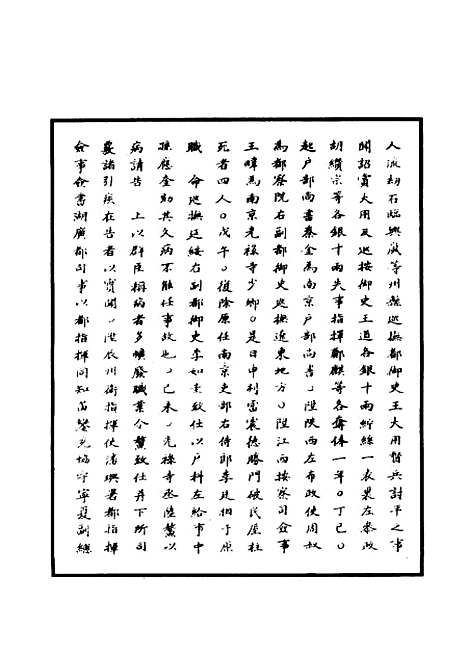 人流劫石臨興嵐等州縣巡撫都御史王大用督兵討平之事
聞詔賞大用及巡按御史王道各銀十兩紵絲一表裏左參政
胡纘宗等各銀十兩失事指揮鄺麒等各奪俸一年○丁巳○
起戶部尚書秦金為南京戶部尚書○陞陝西左布政使周叔
為都察院右副都御史巡撫遼東地方○陞江西按察司僉事
王暐為南京光祿寺少卿○是日申刻雷震德勝門破民屋柱
死者四人○戊午○復除原任南京吏部右侍郎李廷相于原
職　命巡撫延綏右副都御史李如圭致仕以戶科左給事中
孫應奎劾其久病不能任事故也○己未○光祿寺丞陸鰲以
病請告　上以群臣稱病者多曠廢職業令鰲致仕并下所司
覈諸引疾在告者以實聞○陞辰州衛指揮使潘珙署都指揮
僉事僉書湖廣都司事以都指揮同知苗鑾充協守寧夏副總